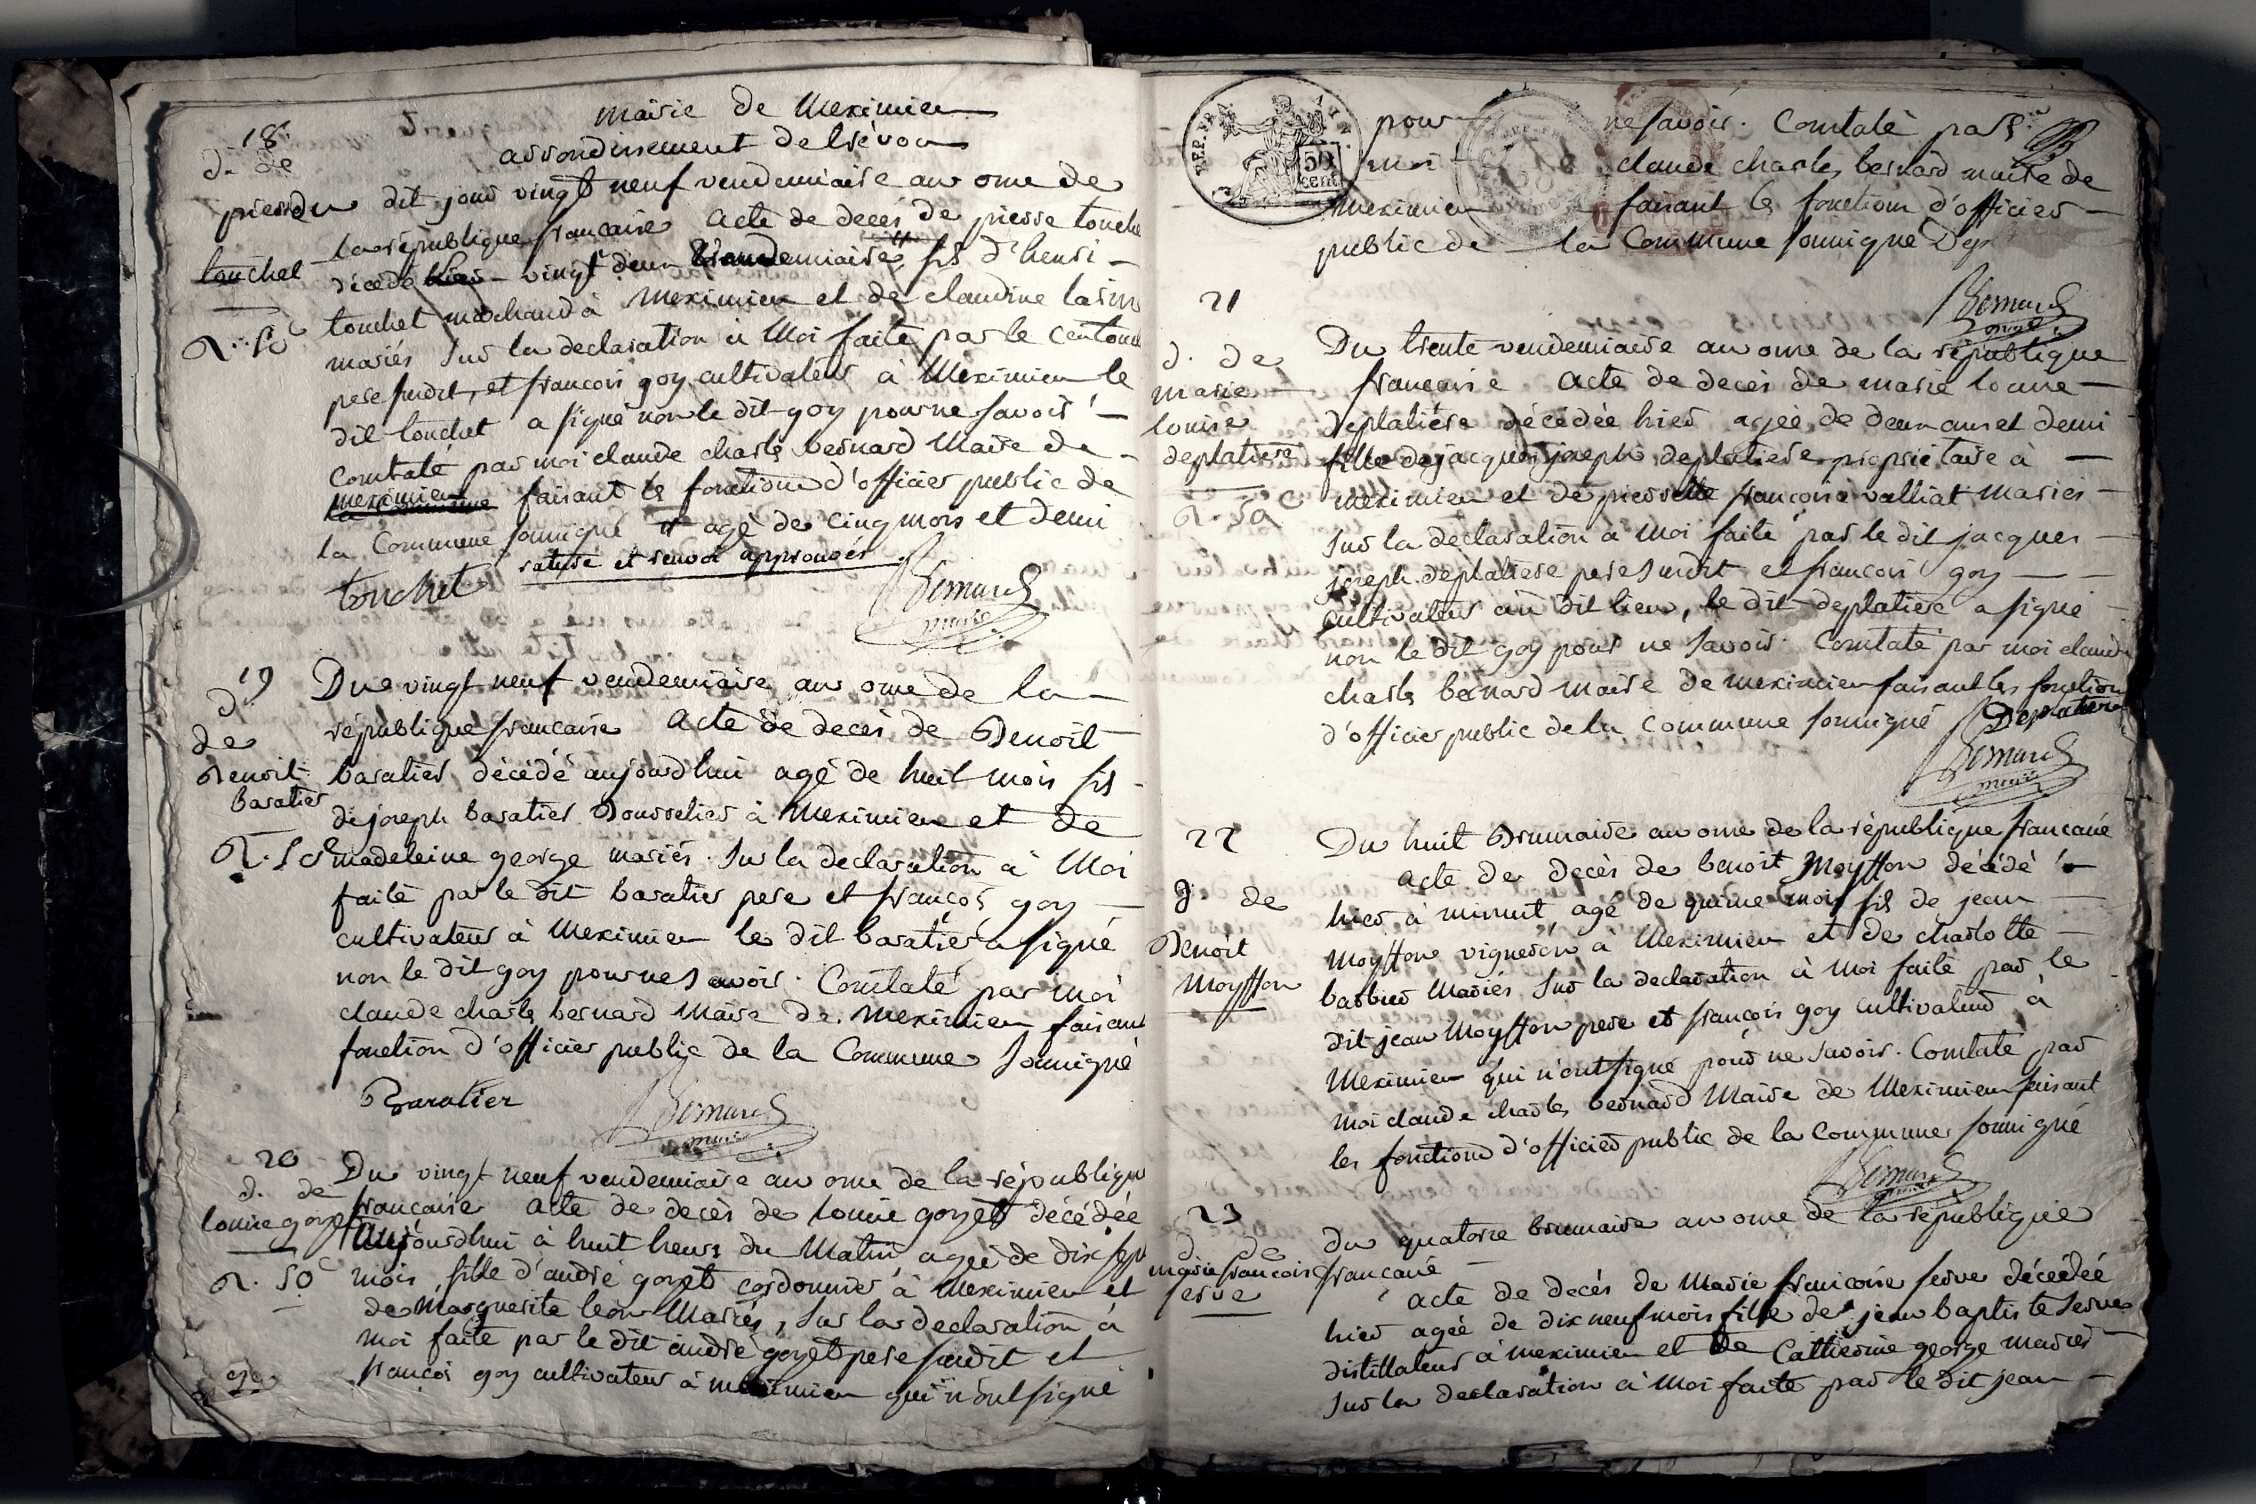 mairie de Meximieu
arrondissement de trévou
18.
d. de
pierre
touchet
R. 50c
du dit jour vingt neuf vendemiaire an onze de
la république francaise acte de decés de pierre touchet
décédé hier vingt deux vendemiaire fils d'henri
touchet marchand à Meximieu et de claudine
mariés sur la declaration a Moi faite par le
pere susdit, et francois goy cultivateur à Meximieu le
dit touchet a signé non le dit goy pour ne savoir
Constaté par moi claude charles bernard Maire de
meximieu faisant les fonctions d'officier public de
la Commune soussigné # agé de cinq mois et demi
rature et renvoi approuvés
touchet
Bernard
maire
19
d.
de
Benoit
baratier
R. 50c
Du vingt neuf vendemiaire an onze de la
république francaise acte de decés de Benoit
baratier décédé aujourdhui agé de huit mois fils
de joseph baratier Bourrelier à Meximieu et de
madeleine george mariés. sur la declaration à Moi
faite par le dit baratier pere et francois goy
cultivateur à Meximieu le dit baratier a signé
non le dit goy pour ne savoir. Constaté par moi
claude charles bernard Maire de Meximieu faisant
fonction d'officier public de la Commune soussigné
Baratier
Bernard
maire
20
d. de
louise goyet
R. 50c
Du vingt neuf vendemiaire an onze de la république
francaise acte de decés de louise goyet décédée
aujourdhui à huit heures du Matin, agée de dix sept
mois, fille d'andré goyet cordonnier à Meximieu et
de Marguerite leon Mariés, sur la declaration à
moi faite par le dit andré goyet pere susdit et
francois goy cultivateur à meximieu qui n'ont signé
REP. FRA.
50
cent.
pour ne savoir. Constaté par
moi claude charles bernard maire de
meximieu faisant les fonctions d'officier
public de la Commune soussigné
Bernard
maire
21
d. de
marie
louise
deplatiere
R. 50c
Du trente vendemiaire an onze de la république
francaise acte de decés de marie louise
deplatière décédée hier agée de deux ans et demi
fille de jacques joseph deplatiere proprietaire à
meximieu et de pierrette francoise valliat mariés
sur la declaration à moi faite par le dit jacques
joseph deplatiere pere susdit et francois goy
cultivateur au dit lieu, le dit deplatiere a signé
non le dit goy pour ne savoir. Constaté par moi claude
charles bernard maire de meximieu faisant les fonctions
d'officier public de la commune soussigné
Deplatiere
Bernard
maire
22
d. de
Benoit
Moyffon
Du huit Brumaire an onze de la république francaise
acte de decés de benoit Moyffon décédé
hier à minuit, agé de quinze mois fils de jean
Moyffon vigneron à Meximieu et de charlotte
barbier Mariés, sur la declaration à moi faite par le
dit jean Moyffon pere et francois goy cultivateur à
Meximieu qui n'ont signé pour ne savoir. Constaté par
moi claude charles bernard Maire de Meximieu faisant
les fonctions d'officier public de la Commune soussigné
Bernard
maire
23
d. de
marie francoise
serve
du quatorze brumaire an onze de la république
francaise
acte de decés de Marie francoise serve décédée
hier agée de dix neuf mois fille de jean baptiste serve
distillateur à meximieu et de Catherine george mariés
sur la declaration à Moi faite par le dit jean